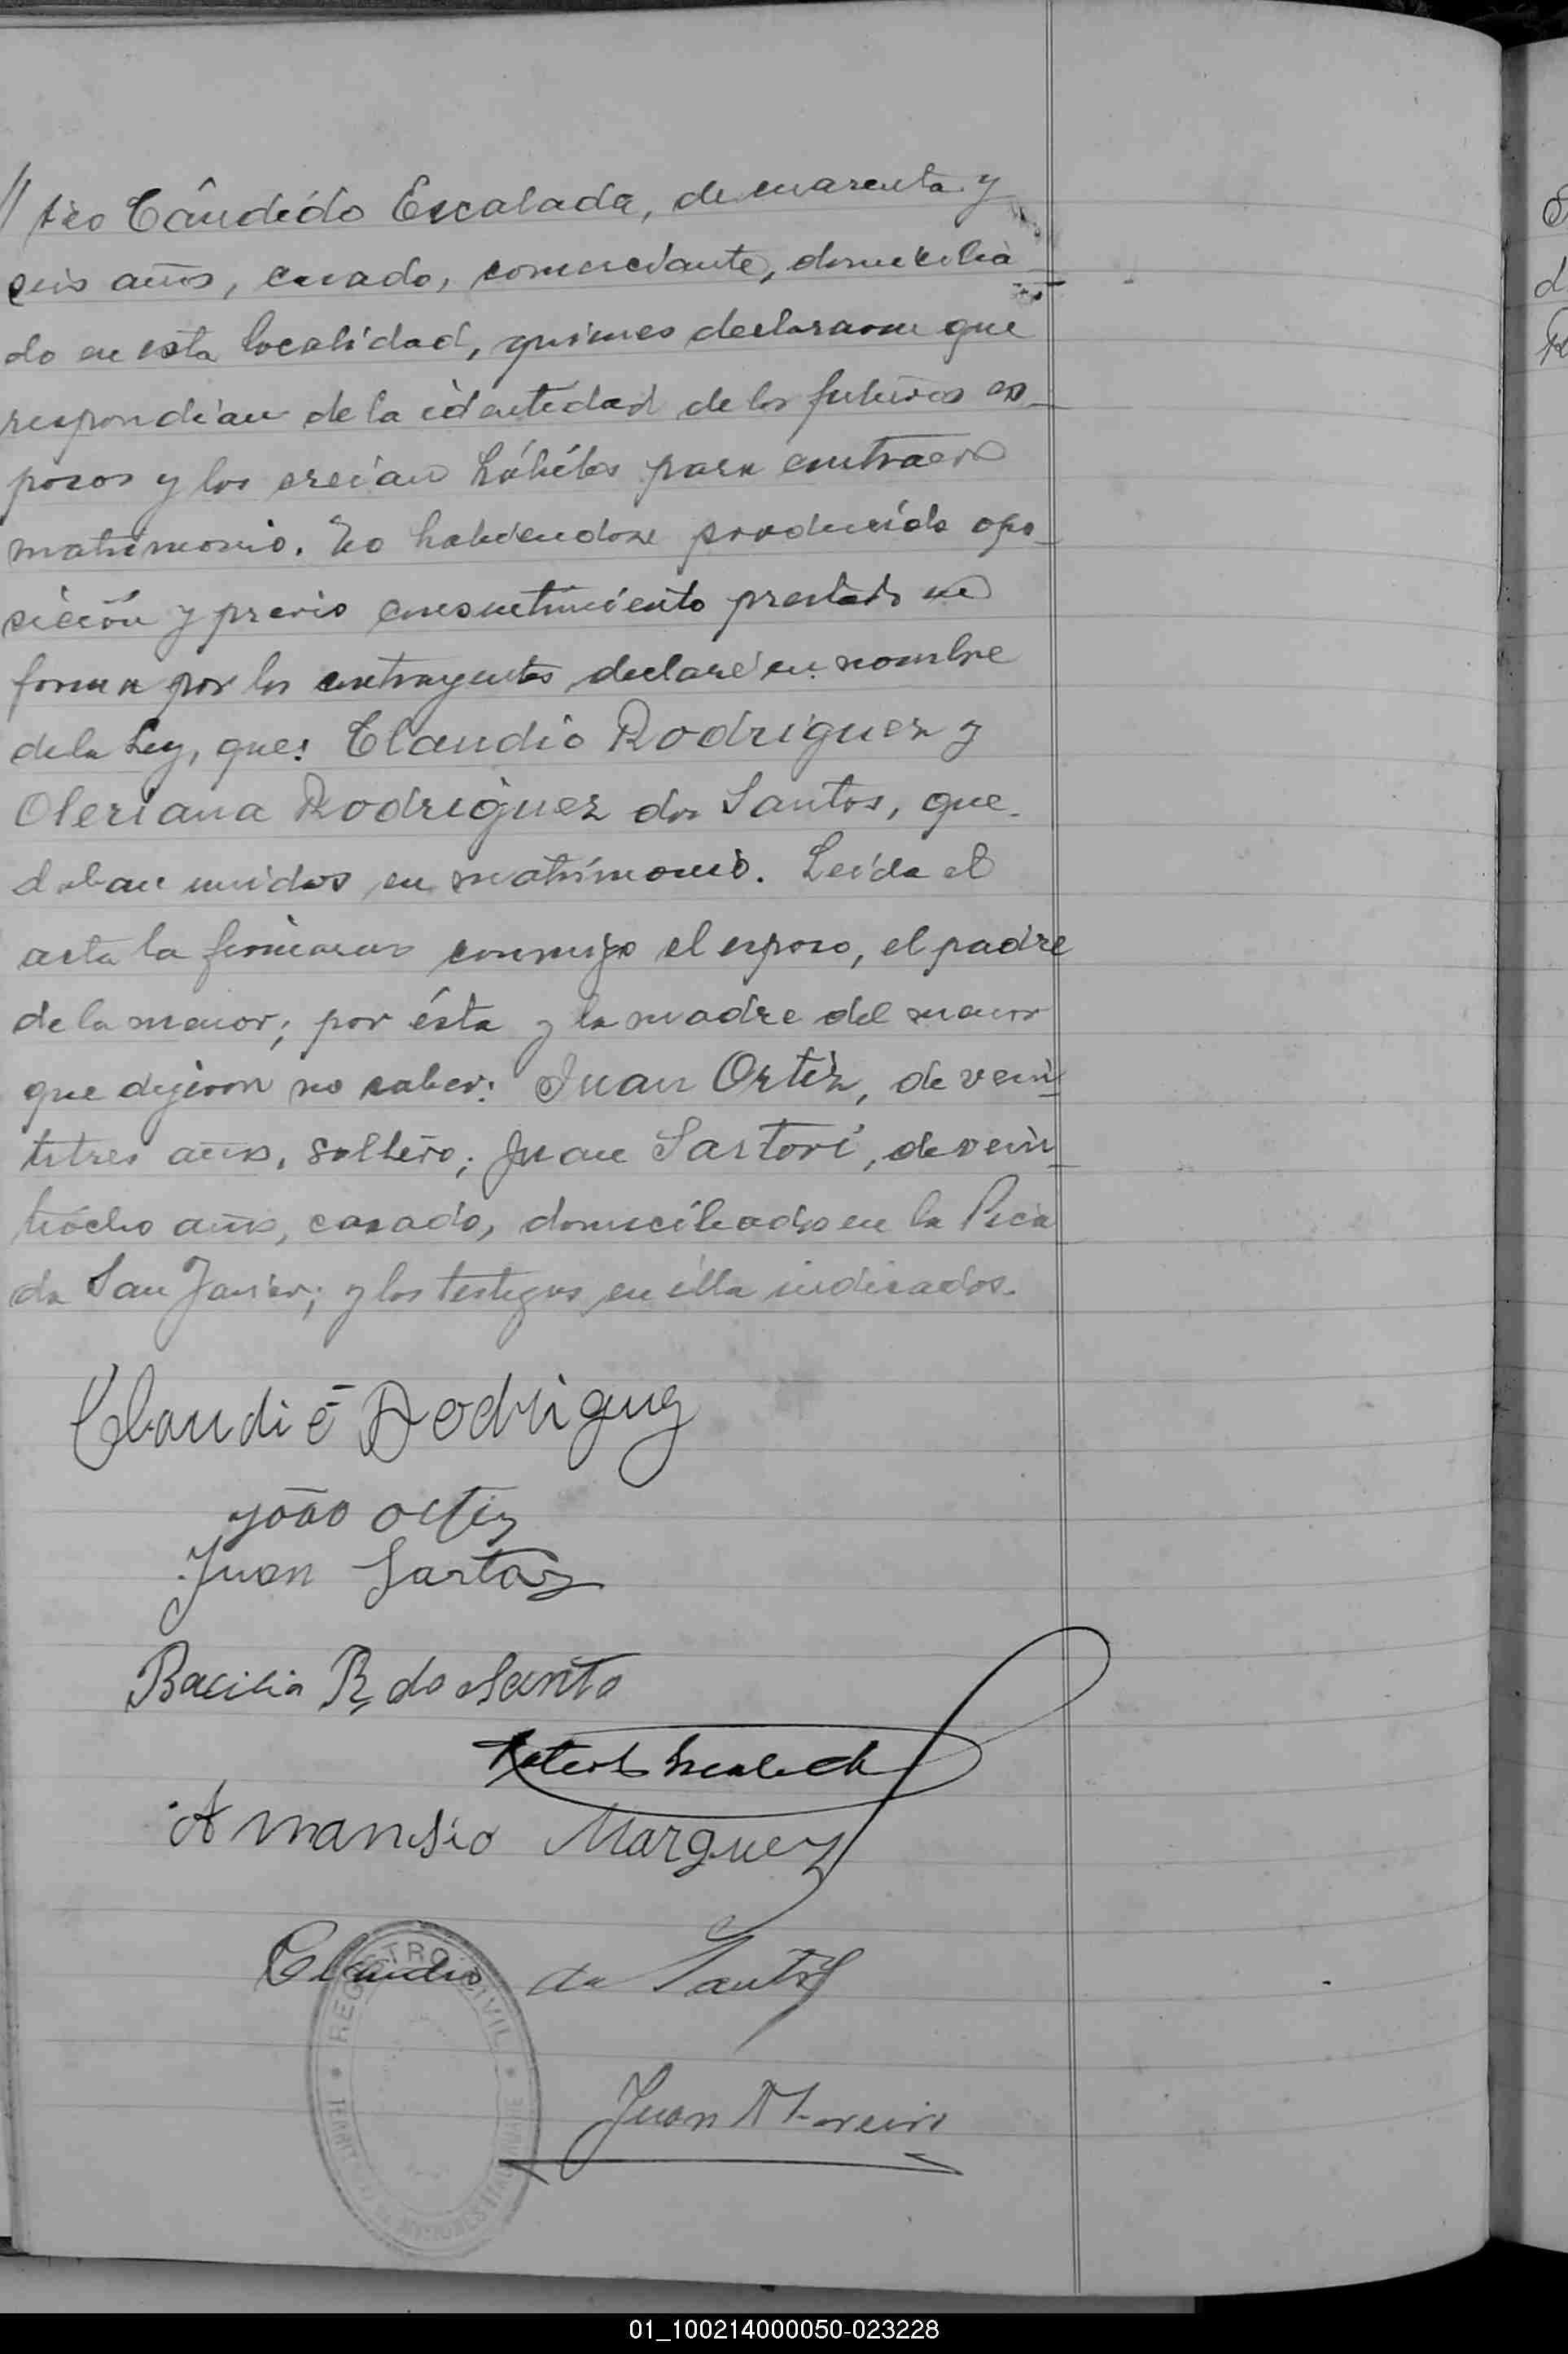 // tro Cândido Escalada, de cuarenta y
seis años, casado, comerciante, domicilia
do en esta localidad, quienes declararon que
respondian de la identidad de los futuros es_
posos y los creian hábiles para contraer
matrimonio. No habiendose producido opo_
sición y previo consentimiento prestado en
forma por los contrayentes declaré en nombre
de la Ley, que: Claudio Rodriguez y
Oleriana Rodriguez dos Santos, que_
daban unidos en matrimonio. Leida el
acta la firmaron conmigo el esposo, el padre
de la menor; por ésta y la madre del menor
que dijeron no saber: Juan Ortiz, de vein_
titres años, soltero; Juan Sartori, de vein_
tiócho años, casado, domiciliados en la Pica
da San Javier; y los testigos en ella indicados.
Claudio Rodriguez
João Ortiz
Juan Sartori
Bacilia R, do Santo
Amansio Marquez
Claudio do Santos
REGISTRO CIVIL
Juan Moreira
01_100214000050-023228